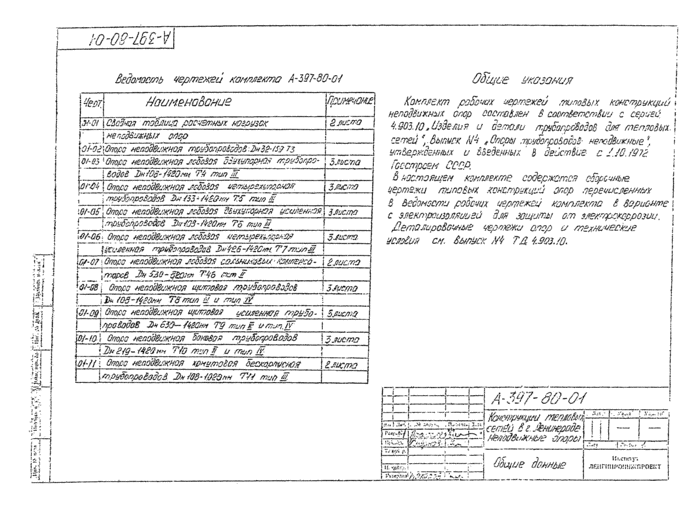 А-397-80-01
Ведомость чертежей комплекта А-397-80-01
Черт. Наименование Примечание
01-01 Сводная таблица расчетных нагрузок 2 листа
неподвижных опор
01-02 Опора неподвижная трубопроводов Дн 32-159 Т3
01-03 Опора неподвижная лобовая двухупорная трубопро- 3 листа
водов Дн 108-1420мм Т4 тип III
01-04 Опора неподвижная лобовая четырехупорная 3 листа
трубопроводов Дн 133-1420мм Т5 тип III
01-05 Опора неподвижная лобовая двухупорная усиленная 3 листа
трубопроводов Дн 108-1420мм Т6 тип III
01-06 Опора неподвижная лобовая четырехупорная 3 листа
усиленная трубопроводов Дн 426-1420мм Т7 тип III
01-07 Опора неподвижная лобовая сальниковых компенса- 2 листа
торов Дн 530- Т46 тип II
01-08 Опора неподвижная щитовая трубопроводов 3 листа
Дн 108-1420мм Т8 тип II и тип IV
01-09 Опора неподвижная щитовая усиленная трубо- 3 листа
проводов Дн 630-1420мм Т9 тип II и тип IV
01-10 Опора неподвижная боковая трубопроводов 3 листа
Дн 219-1420мм Т10 тип II и тип IV
01-11 Опора неподвижная хомутовая бескорпусная 2 листа
трубопроводов Дн 108-1020мм Т11 тип III
Общие указания
Комплект рабочих чертежей типовых конструкций
неподвижных опор составлен в соответствии с серией
4.903.10 „Изделия и детали трубопроводов для тепловых
сетей", выпуск №4 „Опоры трубопроводов неподвижные",
утвержденных и введенных в действие с 1.10.1972
Госстроем СССР.
В настоящем комплекте содержатся сборочные
чертежи типовых конструкций опор перечисленных
в ведомости рабочих чертежей комплекта в варианте
с электроизоляцией для защиты от электрокоррозии.
Деталировочные чертежи опор и технические
условия см. выпуск №4 ТД 4.903.10.
А-397-80-01
Конструкции тепловых
сетей в г. Ленинграде
неподвижные опоры
Общие данные
Институт
ЛЕНГИПРОИНЖПРОЕКТ